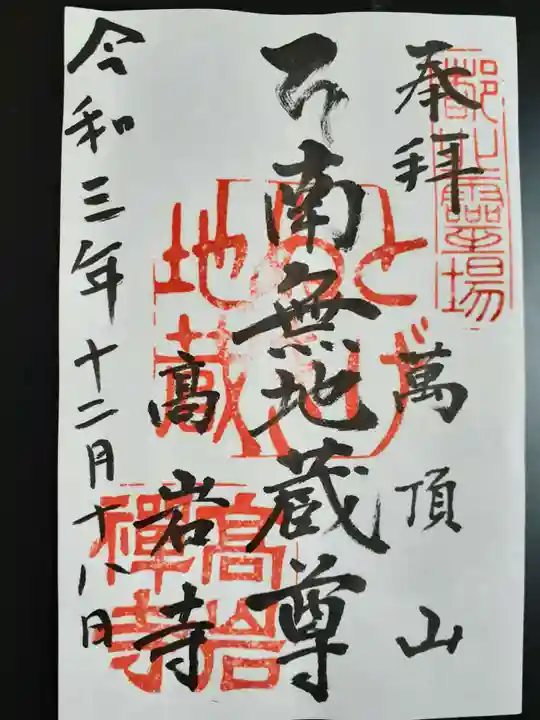 奉拝
萬頂山
南無地蔵尊
髙岩寺
令和三年十二月十八日
とげぬき
地蔵
髙岩
禅寺